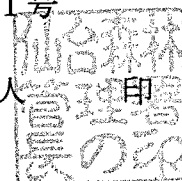 1号
人 印
仙台森林
管理署
長の印